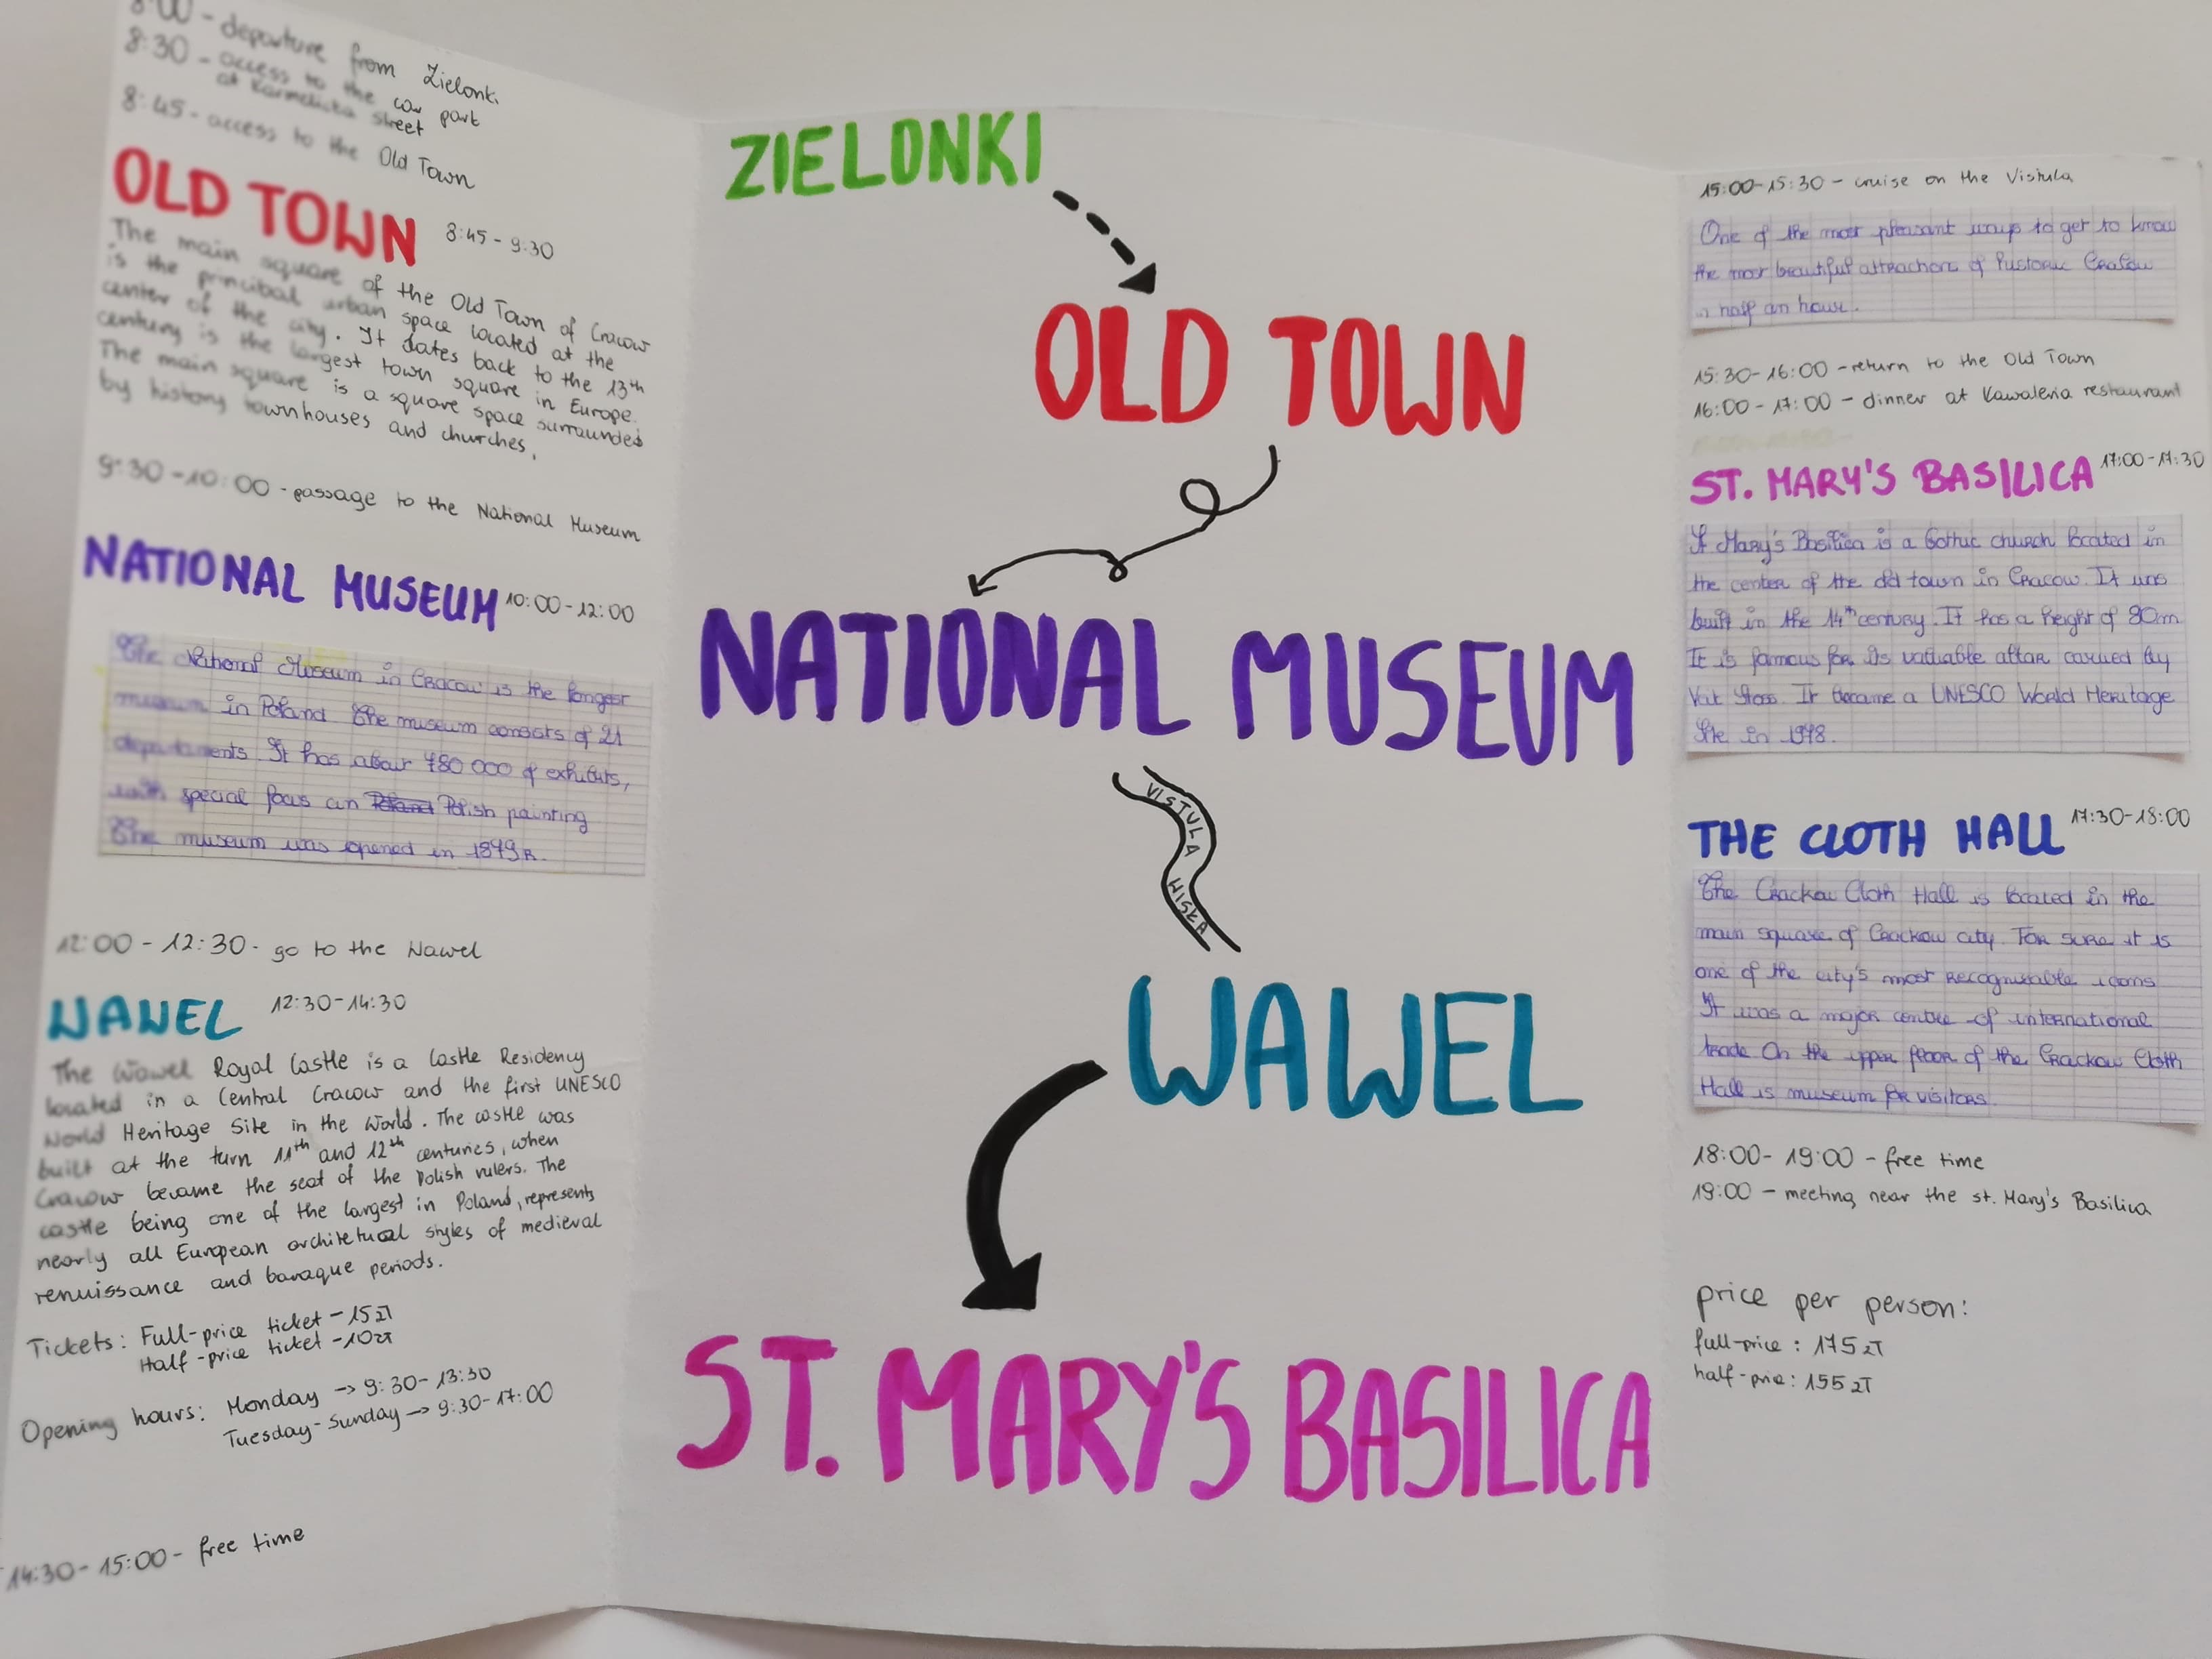 8:00 - departure from Zielonki
8:30 - access to the car park
at Karmelicka street
8:45 - access to the Old Town
OLD TOWN 8:45 - 9:30
The main square of the Old Town of Cracow
is the principal urban space located at the
center of the city. It dates back to the 13th
century is the largest town square in Europe.
The main square is a square space surrounded
by history townhouses and churches.
9:30 - 10:00 - passage to the National Museum
NATIONAL MUSEUM 10:00 - 12:00
The National Museum in Cracow is the longest
museum in Poland The museum consists of 21
departaments. It has about 780 000 of exhibits,
with special focus on Poland Polish painting
The museum was opened in 1879r.
12:00 - 12:30 - go to the Wawel
WAWEL 12:30 - 14:30
The Wawel Royal Castle is a Castle Residency
located in a Central Cracow and the first UNESCO
World Heritage Site in the World. The castle was
built at the turn 11th and 12th centuries, when
Cracow became the seat of the Polish rulers. The
castle being one of the largest in Poland, represents
nearly all European architetual styles of medieval
renuissance and baraque periods.
Tickets: Full-price ticket - 15zł
Half-price ticket - 10zł
Opening hours: Monday -> 9:30 - 13:30
Tuesday - Sunday -> 9:30 - 17:00
14:30 - 15:00 - free time
ZIELONKI
OLD TOWN
NATIONAL MUSEUM
VISTULA
WISŁA
WAWEL
ST. MARY'S BASILICA
15:00 - 15:30 - cruise on the Vistula
One of the most pleasant ways to get to know
the most beautiful attractions of historic Cracow
half an hour.
15:30 - 16:00 - return to the Old Town
16:00 - 17:00 - dinner at Kawaleria restaurant
ST. MARY'S BASILICA 17:00 - 17:30
St Mary's Basilica is a Gothic church located in
the center of the old town in Cracow. It was
built in the 14th century. It has a height of 80m
It is famous for its valuable altar carved by
Veit Stoss. It became a UNESCO World Heritage
Site in 1978.
THE CLOTH HALL 17:30 - 18:00
The Crackow Cloth Hall is located in the
main square of Crackow city. For sure it is
one of the city's most recognisable icons
It was a major centre of international
trade On the upper floor of the Crackow Cloth
Hall is museum for visitors.
18:00 - 19:00 - free time
19:00 - meeting near the st. Mary's Basilica
price per person:
full-price : 175 zł
half-price : 155 zł